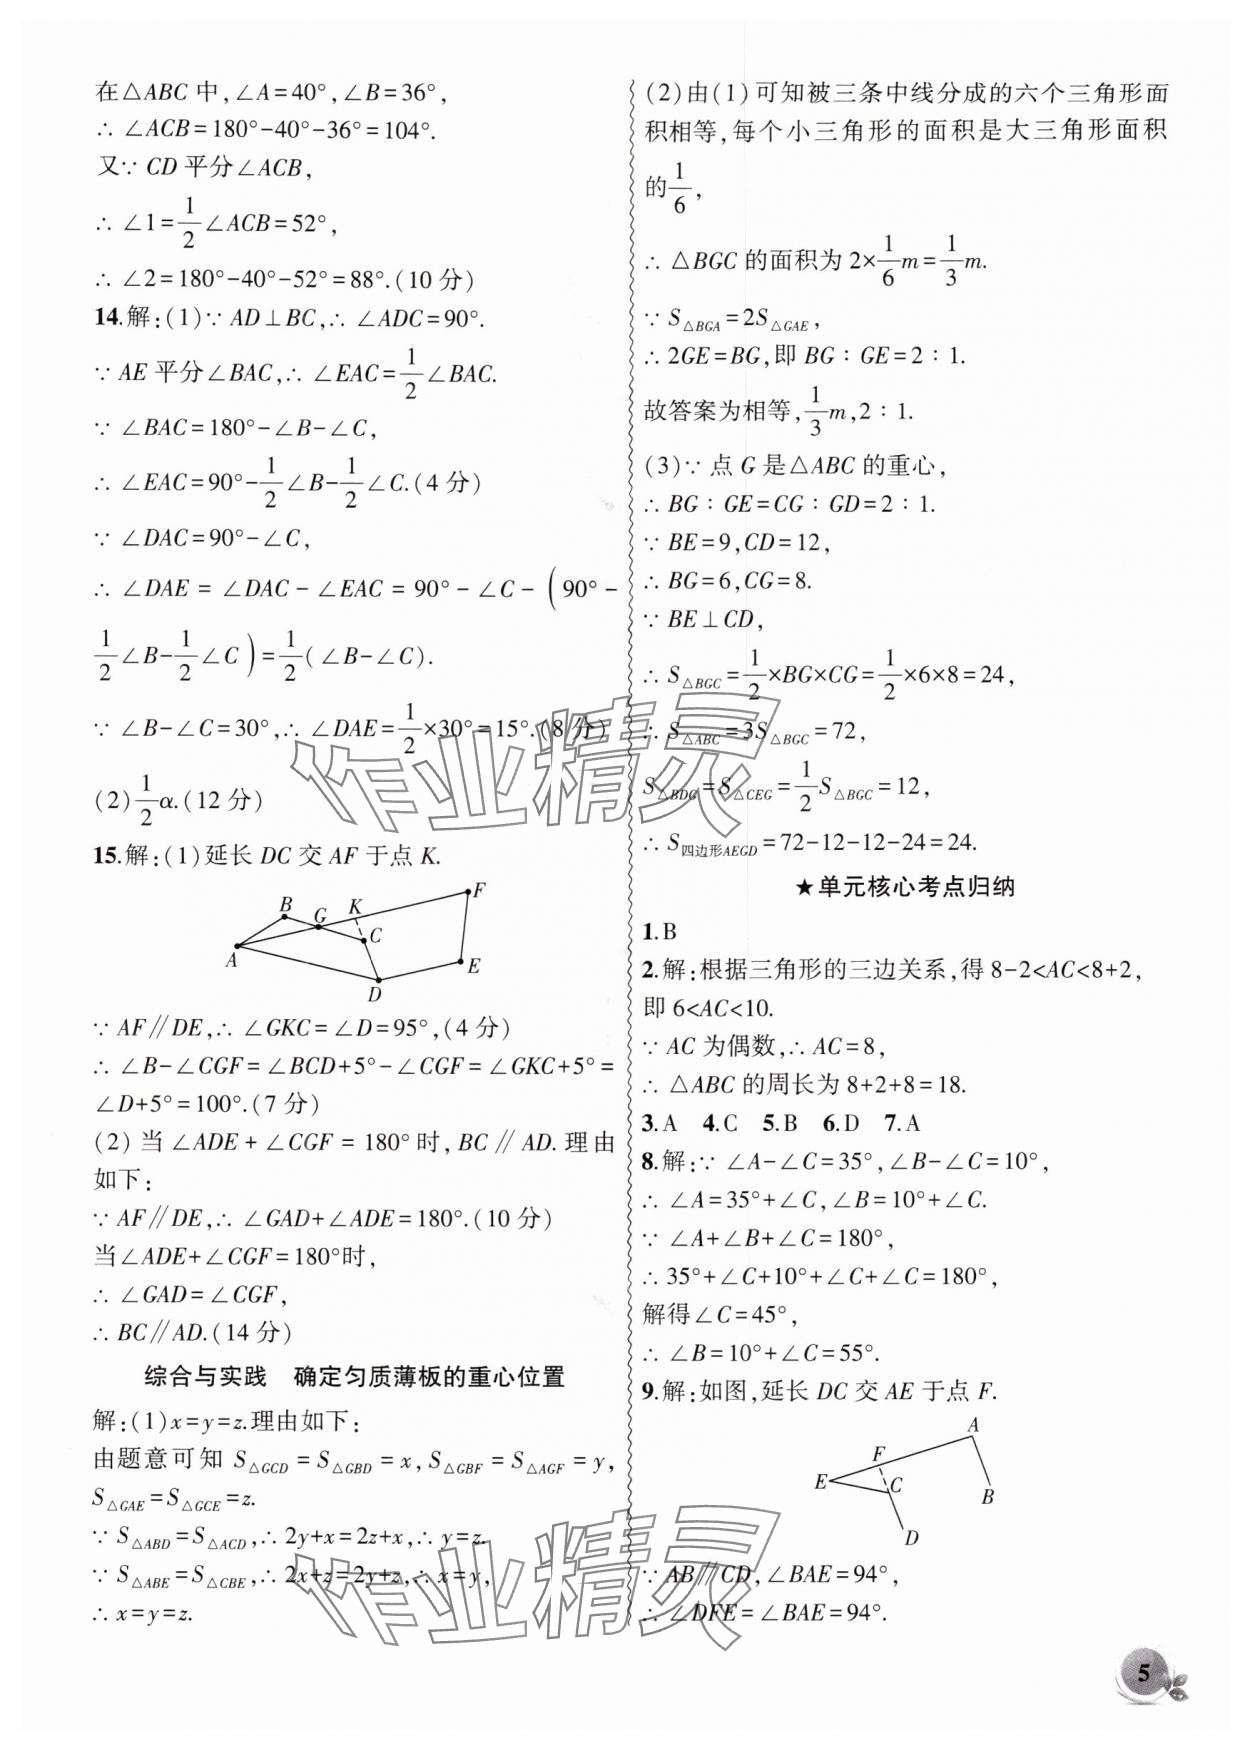 在△ABC 中,∠A=40°,∠B=36°,
∴ ∠ACB=180°-40°-36°=104°.
又∵ CD 平分∠ACB,
∴ ∠1=1/2∠ACB=52°,
∴ ∠2=180°-40°-52°=88°.(10 分)
14.解:(1)∵ AD⊥BC,∴ ∠ADC=90°.
∵ AE 平分∠BAC,∴ ∠EAC=1/2∠BAC.
∵ ∠BAC=180°-∠B-∠C,
∴ ∠EAC=90°-1/2∠B-1/2∠C.(4 分)
∵ ∠DAC=90°-∠C,
∴ ∠DAE = ∠DAC - ∠EAC = 90° - ∠C - (90° -
1/2∠B-1/2∠C)=1/2(∠B-∠C).
∵ ∠B-∠C=30°,∴ ∠DAE=1/2×30°=15°.(8 分)
(2)1/2α.(12 分)
15.解:(1)延长 DC 交 AF 于点 K.
B G K F
A C E
D
∵ AF∥DE,∴ ∠GKC=∠D=95°,(4 分)
∴ ∠B-∠CGF=∠BCD+5°-∠CGF=∠GKC+5°=
∠D+5°=100°.(7 分)
(2) 当 ∠ADE + ∠CGF = 180° 时, BC ∥ AD. 理由
如下:
∵ AF∥DE,∴ ∠GAD+∠ADE=180°.(10 分)
当∠ADE+∠CGF=180°时,
∴ ∠GAD=∠CGF,
∴ BC∥AD.(14 分)
综合与实践 确定匀质薄板的重心位置
解:(1)x=y=z.理由如下:
由题意可知 S△GCD = S△GBD = x, S△GBF = S△AGF = y,
S△GAE=S△GCE=z.
∵ S△ABD=S△ACD,∴ 2y+x=2z+x,∴ y=z.
∵ S△ABE=S△CBE,∴ 2x+z=2y+z,∴ x=y,
∴ x=y=z.
(2)由(1)可知被三条中线分成的六个三角形面
积相等,每个小三角形的面积是大三角形面积
的1/6,
∴ △BGC 的面积为 2×1/6m=1/3m.
∵ S△BGA=2S△GAE,
∴ 2GE=BG,即 BG∶GE=2∶1.
故答案为相等,1/3m,2∶1.
(3)∵ 点 G 是△ABC 的重心,
∴ BG∶GE=CG∶GD=2∶1.
∵ BE=9,CD=12,
∴ BG=6,CG=8.
∵ BE⊥CD,
∴ S△BGC=1/2×BG×CG=1/2×6×8=24,
∴ S△ABC=3S△BGC=72,
S△BDG=S△CEG=1/2S△BGC=12,
∴ S四边形AEGD=72-12-12-24=24.
★单元核心考点归纳
1.B
2.解:根据三角形的三边关系,得 8-2<AC<8+2,
即 6<AC<10.
∵ AC 为偶数,∴ AC=8,
∴ △ABC 的周长为 8+2+8=18.
3.A 4.C 5.B 6.D 7.A
8.解:∵ ∠A-∠C=35°,∠B-∠C=10°,
∴ ∠A=35°+∠C,∠B=10°+∠C.
∵ ∠A+∠B+∠C=180°,
∴ 35°+∠C+10°+∠C+∠C=180°,
解得∠C=45°,
∴ ∠B=10°+∠C=55°.
9.解:如图,延长 DC 交 AE 于点 F.
A
F
E C B
D
∵ AB∥CD,∠BAE=94°,
∴ ∠DFE=∠BAE=94°.
5
作业精灵
作业精灵